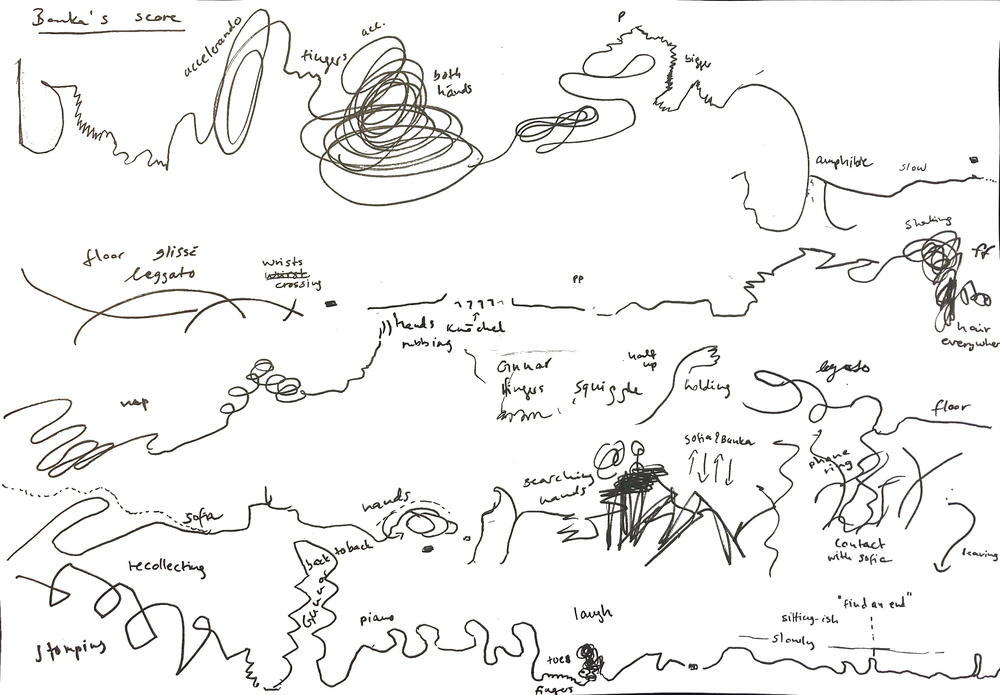 Banka's score
accelerando
fingers
acc.
both
hands
P
bigger
amphible
slow
floor glissé
leggato
wrists
crossing
pp
shaking
ff
hair
everywhere
hands
rubbing
knöchel
nap
Gunnar
fingers
squiggle
half
up
holding
legato
floor
sofia
hands
searching
hands
Sofia & Banka
phone
ring
contact
with sofia
leaving
recollecting
back to back
Gunnar
stomping
piano
laugh
toes
fingers
"find an end"
sitting-ish
slowly